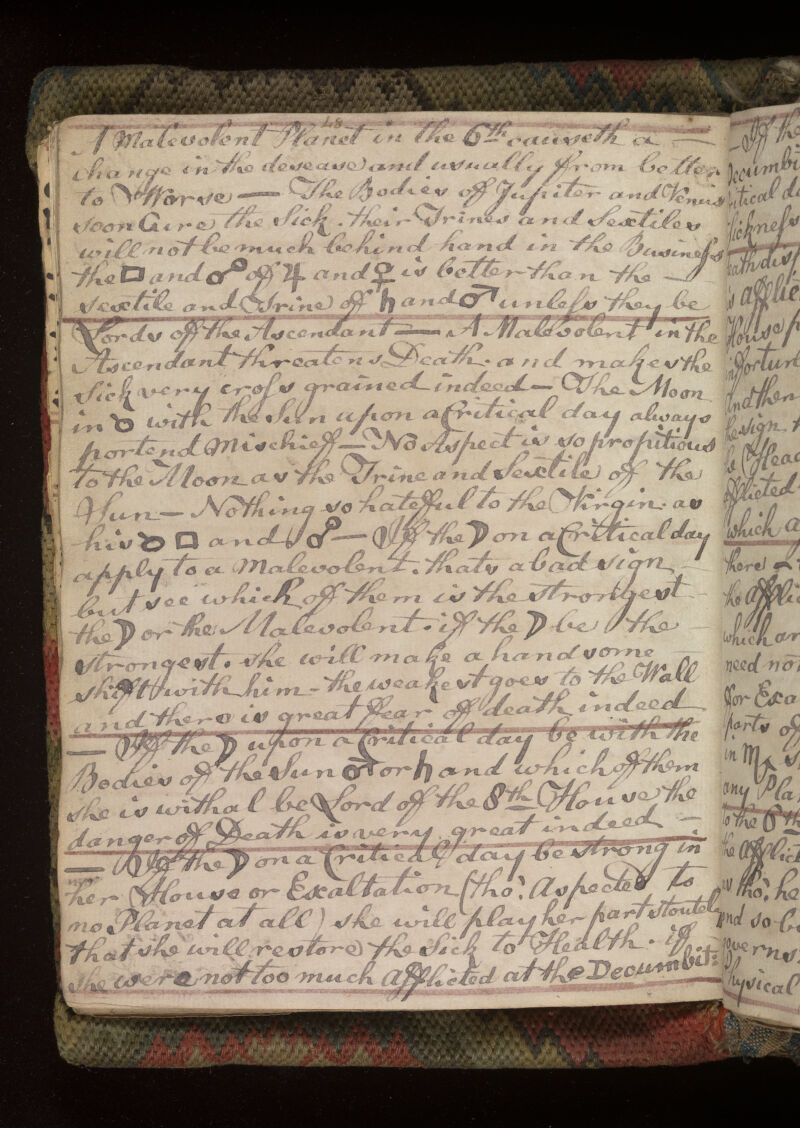 48
A Malevolent Planet in the 6th causeth a —
change in the desease and usually from better
to Worse — The Bodies of Jupiter and Venus
soon Cure the Sick. their Trines and Sextiles
will not be much behind hand in the Business
the □ and ☍ of ♃ and ♀ is better than the —
sextile and Trine of ♄ and ♂ unless they be
Lords of the Ascendant — A Malevolent in the
Ascendant threatens Death. and makes the
Sick very cross grained indeed — The Moon
in ☌ with the Sun upon a Critical day always
portend Mischief — No Aspect is so propitious
to the Moon as the Trine and Sextile of the
Sun — Nothing so hateful to the Virgin. as
his ☌ □ and ☍ — If the ☽ on a Critical day
apply to a Malevolent. thats a bad sign —
but see which of them is the strongest —
the ☽ or the Malevolent. if the ☽ be the
strongest. she will make a handsome
shift with him - the weakest goes to the Wall
and there is great fear of death indeed
— If the ☽ upon a Critical day be with the
Bodies of the Sun ♂ or ♄ and which of them
she is withal be Lord of the 8th House the
danger of Death is very great indeed —
— If the ☽ on a Critical day be strong in
her House or Exaltation (tho' Aspected to
no Planet at all) she will play her part stoutely
that she will restore the Sick to Health. if
she were not too much afflicted at the Decumbit:
— If the
Decumbi
ritical d
sickness
eath disp
is afflic
House p
infortun
And then
he sign
he Head
afflicted
which a
there —
the afflic
which ar
need not
for Exa
parts of
in ♏ s
any Pla
to the 6th
he afflict
as tho' he
and so be
governs
Physical